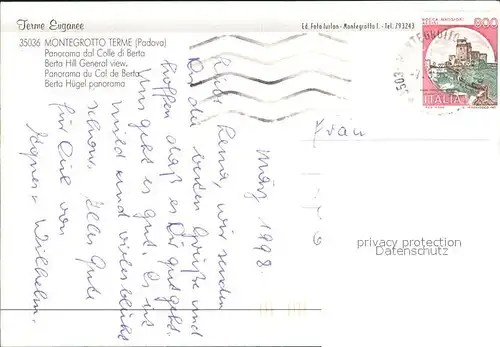 Terme Euganee
35036 MONTEGROTTO TERME (Padova)
Panorama dal Colle di Berta
Berta Hill General view.
Panorama du Col de Berta
Berta Hügel panorama
Ed. Foto Iuston - Montegrotto T. - Tel. 793243
ROCCA MAGGIORE
ASSISI
800
ITALIA
MONTEGROTTO
Frau
März 1998
Liebe Lena, wir senden
Dir die besten Grüße und
hoffen daß es Dir gut geht.
Uns geht es gut. Es ist
mild und vieles blüht
schon. Alles Gute
für Dich von
Agnes + Wilhelm.
privacy protection
Datenschutz